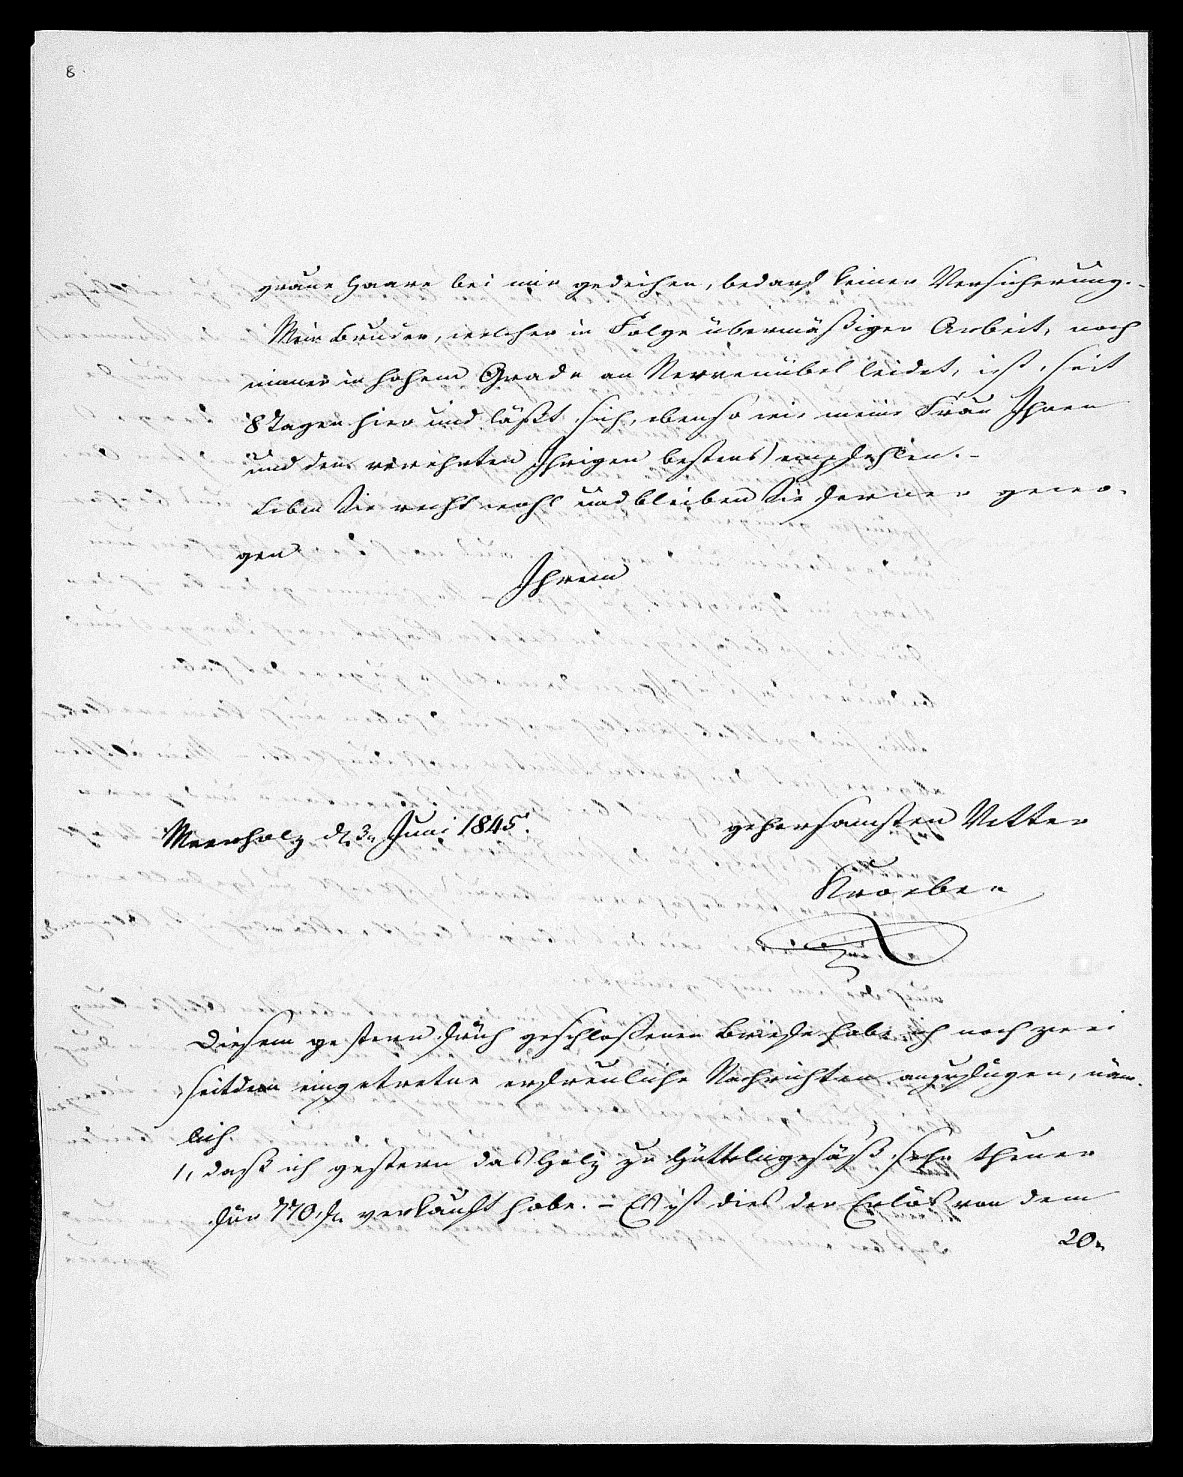 8.
graue Haare bei mir gedeihen, bedarf keiner Versicherung.-
Mein Bruder, welcher in Folge übermäßiger Arbeit, noch
immer in hohem Grade an Nervenübel leidet, ist, seit
8 Tagen hier und läßt sich, ebenso wie meine Frau Ihnen
und den verehrten Ihrigen bestens empfehlen.-
Leben Sie recht wohl und bleiben Sie ferner gewo-
gen
Ihrem
gehorsamsten Vetter
Meerholz d. 3n Juni 1845.
Kroeber
Diesem gestern früh geschloßenen Briefe habe ich noch zwei
seitdem eingetretne erfreuliche Nachrichten anzufügen, näm-
lich
1, daß ich gestern das Holz zu Hüttelngesäß sehr theuer
für 770 f. verkauft habe. - Es ist dies der Erlös von dem
20n